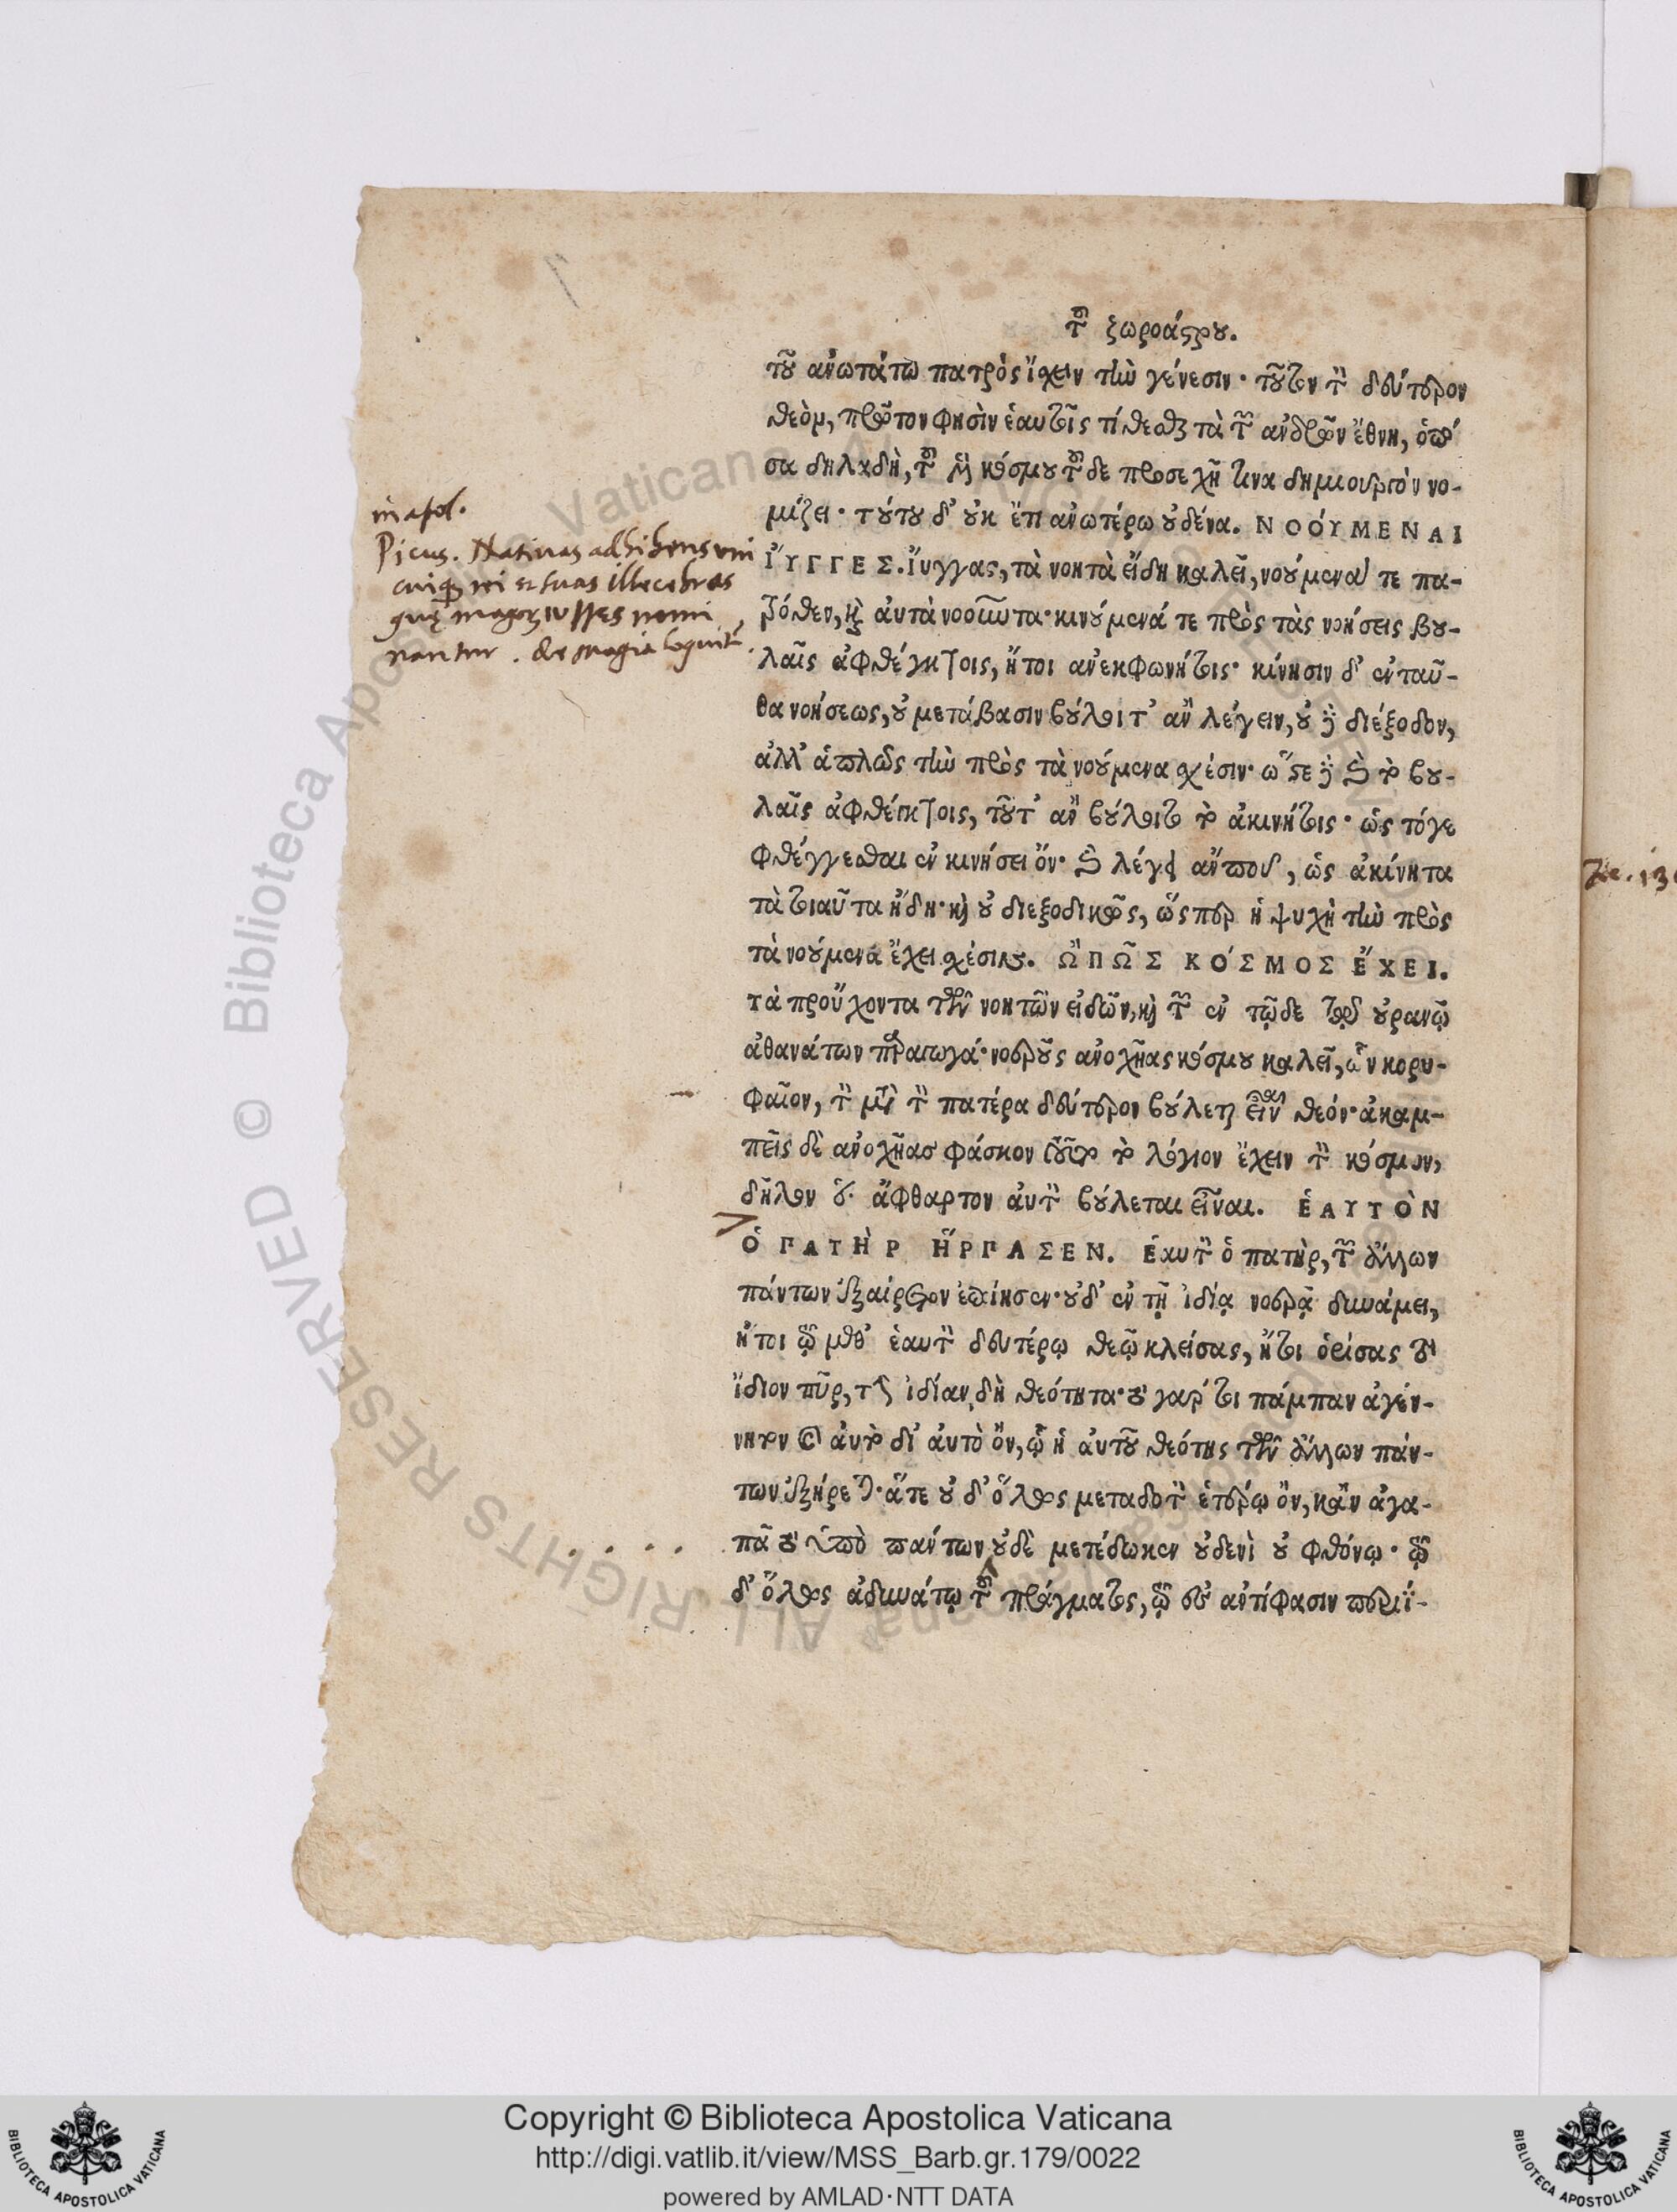 τοῦ ζωροάστρου.
τοῦ ἀνωτάτω πατρὸς ἴσχειν τὴν γένεσιν· τοῦτον τὸν δεύτερον
θεὸν, πρῶτον φησὶν ἑαυτοῖς τίθεσθαι τὰ τῶν ἀνδρῶν ἔθνη, ὁπό
σα δηλαδὴ, τοῦ κόσμου τοῦδε προσεχῆ τινα δημιουργὸν νο-
μίζει· τούτου δ' οὐκ ἔτι ἀνωτέρω οὐδένα. ΝΟΟΎΜΕΝΑΙ
ἼΥΓΓΕΣ. ἴϋγγας, τὰ νοητὰ εἴδη καλεῖ, νοούμενά τε πα-
τρόθεν, καὶ αὐτὰ νοοῦντα· κινούμενά τε πρὸς τὰς νοήσεις βου-
λαῖς ἀφθέγκτοις, ἤτοι ἀνεκφωνήτοις· κίνησιν δ' ἐνταῦ-
θα νοήσεως, οὐ μετάβασιν βούλοιτ' ἂν λέγειν, οὐδὲ διέξοδον,
ἀλλ' ἁπλῶς τὴν πρὸς τὰ νοούμενα σχέσιν· ὥστε καὶ τὸ βου-
λαῖς ἀφθέγκτοις, τοῦτ' ἂν βούλοιτο τὸ ἀκινήτοις· ὡς τόγε
φθέγγεσθαι ἐν κινήσει ὄν· λέγοι ἄν που, ὡς ἀκίνητα
τὰ τοιαῦτα ἤδη· καὶ οὐ διεξοδικῶς, ὥσπερ ἡ ψυχὴ τὴν πρὸς
τὰ νοούμενα ἔχει σχέσιν. Ὢ ΠΩ͂Σ ΚΌΣΜΟΣ ἜΧΕΙ.
τὰ προὔχοντα τῶν νοητῶν εἰδῶν, καὶ τῶν ἐν τῷδε τῷ οὐρανῷ
ἀθανάτων παραγωγά· νοεροὺς ἀνοχῆας κόσμου καλεῖ, ὧν κορυ-
φαῖον, τὸν μετὰ τὸν πατέρα δεύτερον βούλεται εἶναι θεόν· ἀκαμ-
πεῖς δὲ ἀνοχῆασ φάσκον τοῦτο τὸ λόγιον ἔχειν τὸν κόσμον,
δῆλον ὅτι ἄφθαρτον αὐτὸν βούλεται εἶναι. ἙΑΥΤῸΝ
Ὁ ΠΑΤῊΡ ἭΡΠΑΣΕΝ. ἑαυτὸν ὁ πατὴρ, τῶν ἄλλων
πάντων ἐξαίρετον ἐποίησεν· οὐδ' ἐν τῇ ἰδίᾳ νοερᾷ δυνάμει,
ἤτοι τῷ μεθ' ἑαυτὸν δευτέρῳ θεῷ κλείσας, ἤτοι ὁρίσας τὸ
ἴδιον πῦρ, τὴν ἰδίαν δὴ θεότητα· οὐ γάρ τοι πάμπαν ἀγέν-
νητον καὶ αὐτὸ δι' αὑτὸ ὄν, ᾧ ἡ αὐτοῦ θεότης τῶν ἄλλων πάν-
των ἐξήρεται· ἅτε οὐδ' ὅλως μεταδοτὸν ἑτέρῳ ὂν, κἂν ἀγα-
πᾶσθαι ὑπὸ πάντων οὐδὲ μετέδωκεν οὐδενὶ οὐ φθόνῳ· τῷ
δ' ὅλως ἀδυνάτῳ τοῦ πράγματος, τῷ εἰς ἀντίφασιν περιϊ-
in apol.
Picus. Nativas adhibens uni
cuique rei et suas illecebras
quę magorum iugges nomi
nantur. de magia loquitur.
Copyright © Biblioteca Apostolica Vaticana
http://digi.vatlib.it/view/MSS_Barb.gr.179/0022
powered by AMLAD·NTT DATA
BIBLIOTECA APOSTOLICA VATICANA
BIBLIOTECA APOSTOLICA VATICANA
© Biblioteca Apostolica Vaticana ALL RIGHTS RESERVED